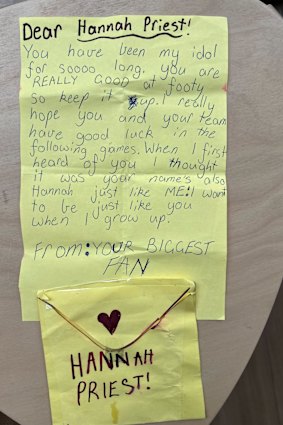 Dear Hannah Priest!
You have been my idol
for soooo long. you are
REALLY GOOD at footy
so keep it up. I really
hope you and your team
have good luck in the
following games. When I first
heard of you I thought
it was your name's also
Hannah just like ME! I want
to be just like you
when I grow up.
FROM: YOUR BIGGEST
FAN
HANNAH
PRIEST!